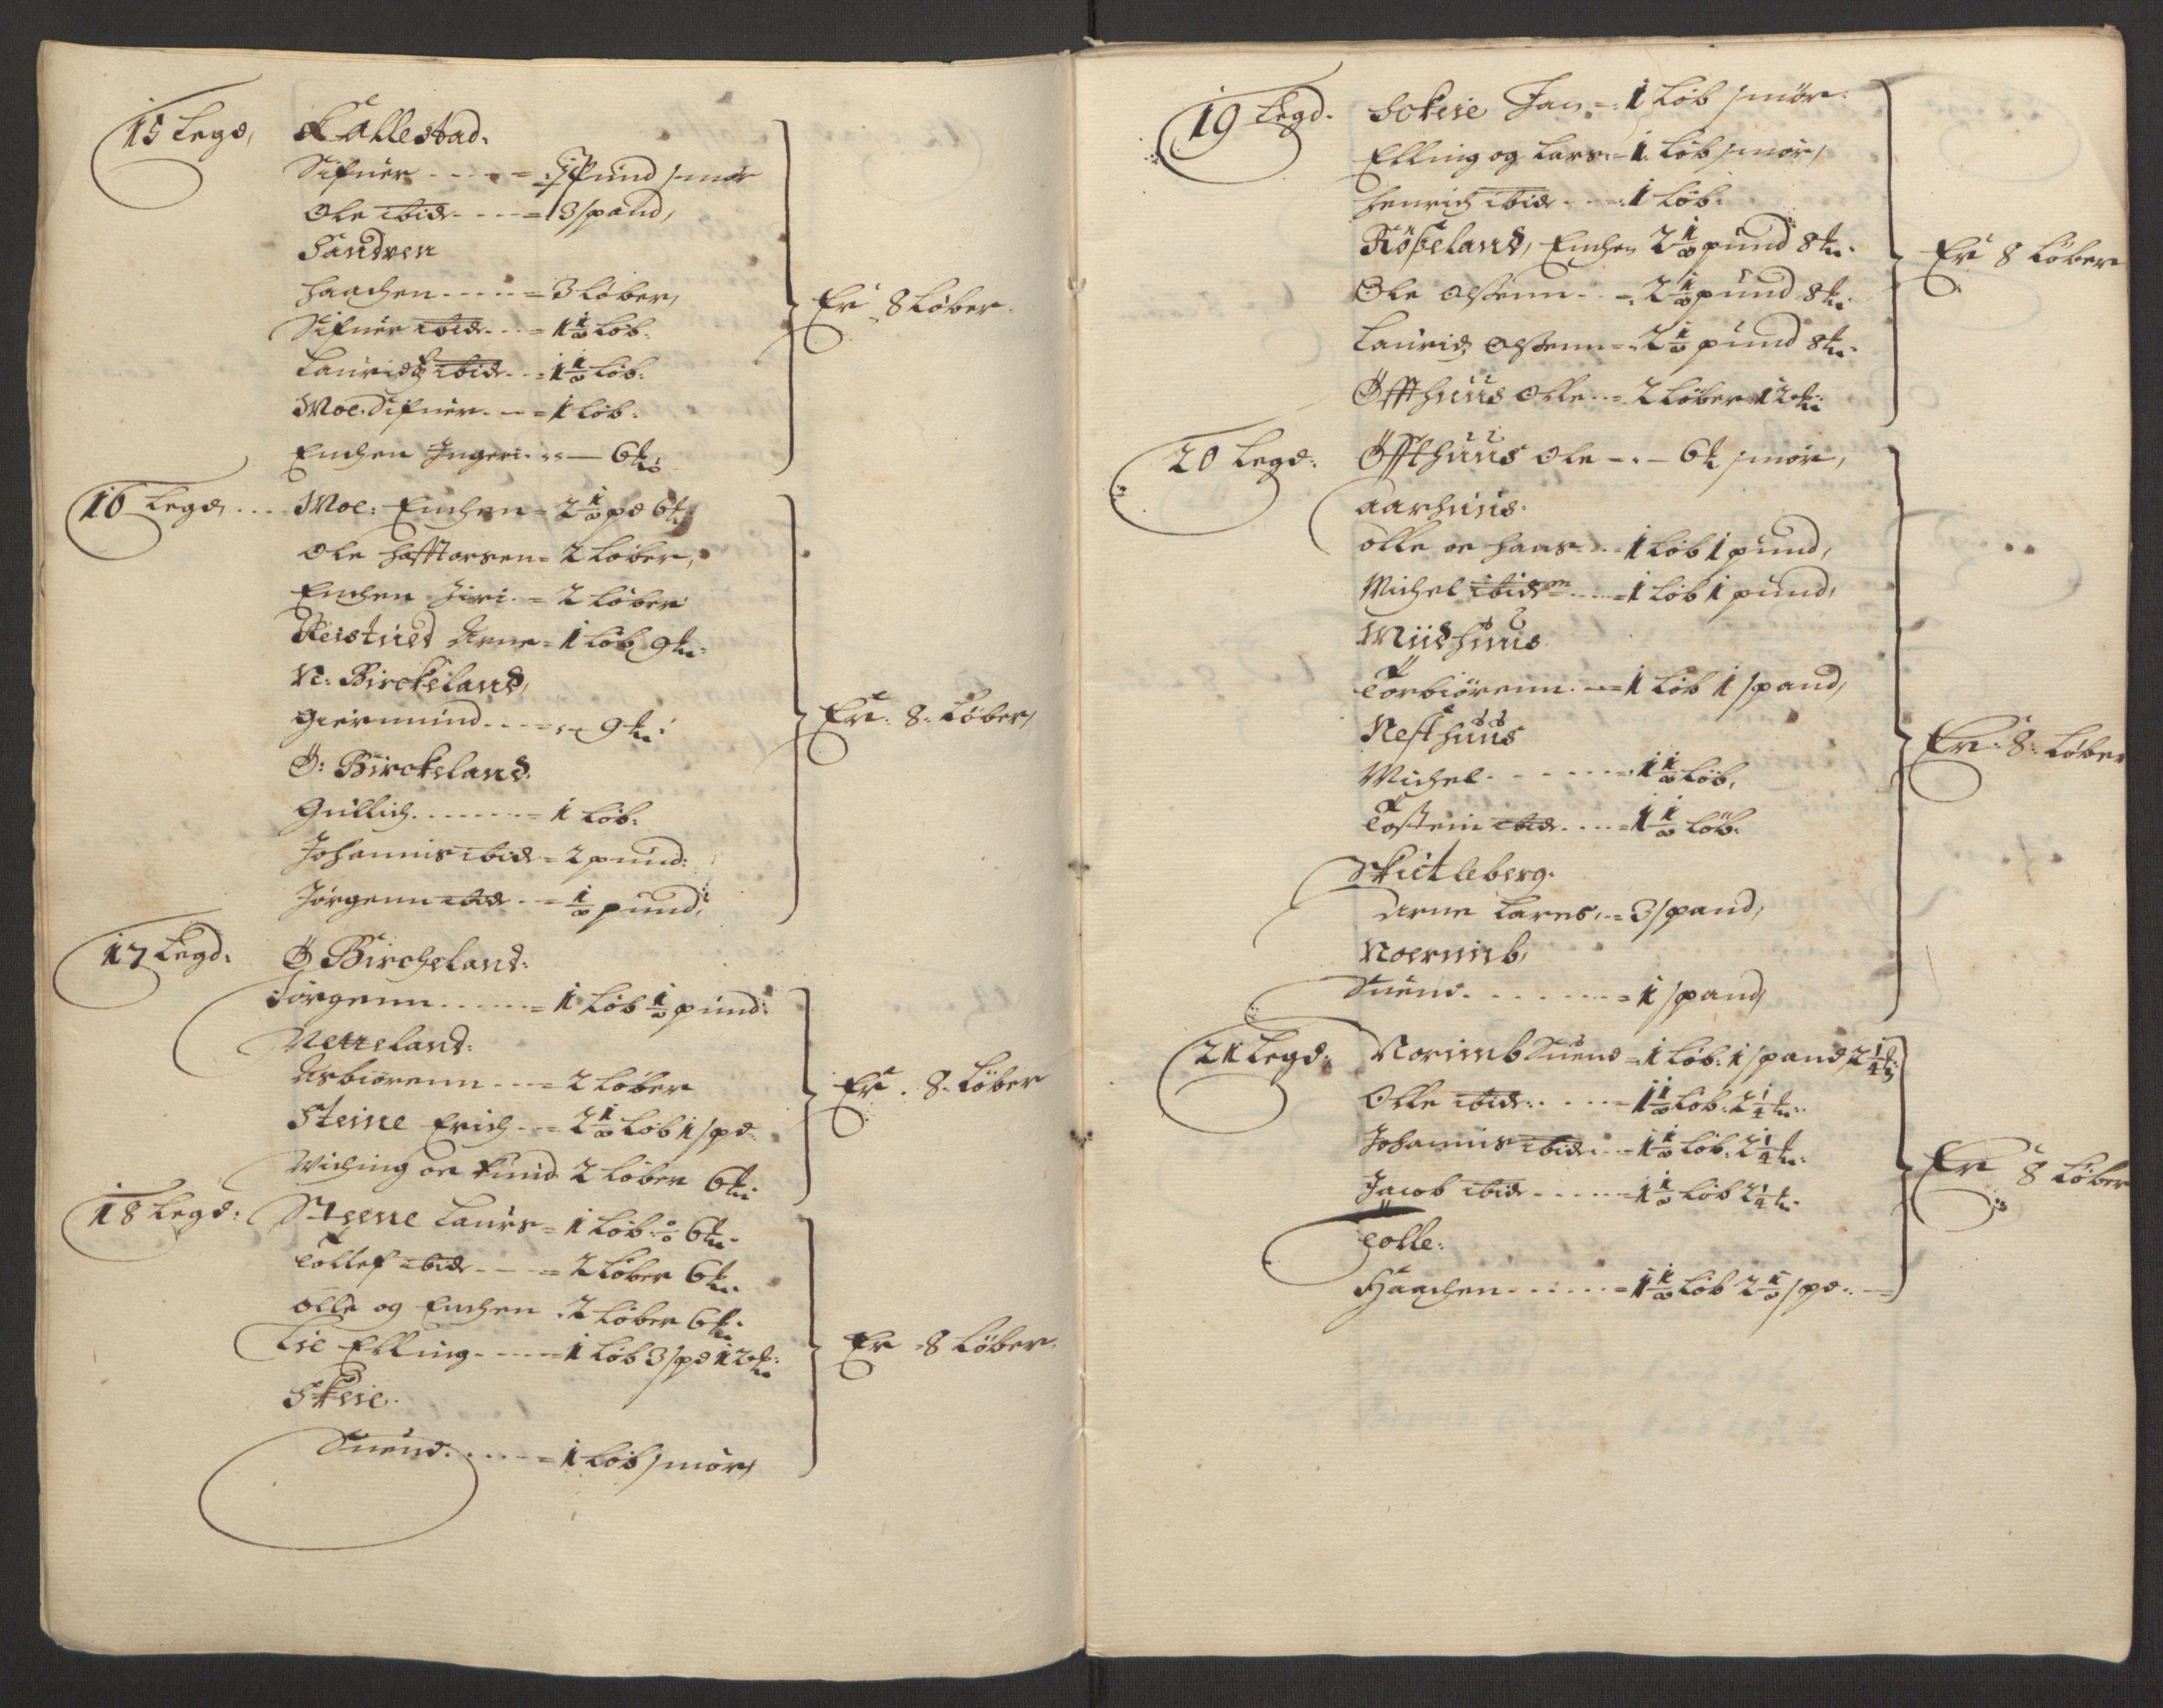 15 Legd, Kallestad:
Sifuer - - - - = Pund smør
Ole ibid - - - = 3 spand,
Sandven
Haachen - - - - = 3 Løber,
Sifuer ibid - - = 1 1/2 Løb.
Lauridz ibid - - = 1 1/2 Løb.
Moe. Sifuer. - - = 1 Løb.
Enchen Ingeri. = — 6 ℔
Er 8 Løber.
16 Legd, ... Moe: Enchen = 2 1/2 pd 6 ℔
Ole = 2 Løber,
Enchen Siri. = 2 Løber
Arne = 1 Løb 9 ℔
N: Birckeland,
Giermund - - - = 9 ℔
Ø: Birckeland.
Gullich - - - - - = 1 Løb.
Johannis ibid = 2 pund:
Jørgenn ibid - = 1/2 pund,
Er: 8: Løber,
17 Legd: Ø Bircheland:
Jørgenn - - - - - = 1 Løb 1/2 pund:
Netteland:
Asbiørenn - - - = 2 Løber
Steine Erich - - = 2 1/2 Løb 1 spd
Viching oc Knud 2 Løber 6 ℔
Er. 8: Løber
18 Legd: Steene Laurs = 1 Løb: 6 ℔
Tollef ibid - - - = 2 Løber 6 ℔
Olle og Enchen : 2 Løber 6 ℔
Lie Elling - - - - = 1 Løb 3 spd 12 ℔
Skeie.
Suend - - - - = 1 Løb smør,
Er 8 Løber.
19 Legd. Jan = 1 Løb smør.
Elling og Lars = 1 Løb smør,
Henrich ibid - - = 1 Løb.
Røseland, Enchen 2 1/2 pund 8 ℔
Ole Olsenn - = 2 1/2 pund 8 ℔
Laurids Olsenn = 2 1/2 pund 8 ℔
Øffthuus Olle - = 2 Løber 12 ℔
Er 8 Løber
20 Legd: Øffthuus Ole - . - 6 ℔ smør,
Aarhuus.
Olle oc Hans - = 1 Løb 1 pund,
Michel ibidem - - - = 1 Løb 1 pund,
Midhuus
Torbiørenn - = 1 Løb 1 spand,
Nesthuus
Michel - - - - - - = 1 1/2 Løb,
Tostein ibid - - - = 1 1/2 Løb.
Skutleberg.
Arne Lares, = 3 spand,
Noerumb,
Suend - - - - - - = 1 spand,
Er: 8: Løber
21 Legd. Norimb Suend = 1 Løb: 1 spand 2 1/4 ℔
Olle ibid: - - - = 1 1/2 Løb. 2 1/4 ℔
Johannis ibid - - = 1 1/2 Løb. 2 1/4 ℔
Jacob ibid - - - - = 1 1/2 Løb 2 1/4 ℔
Tolle:
Haachen - - - - - = 1 1/2 Løb 2 1/2 spd. —
Er 8 Løber